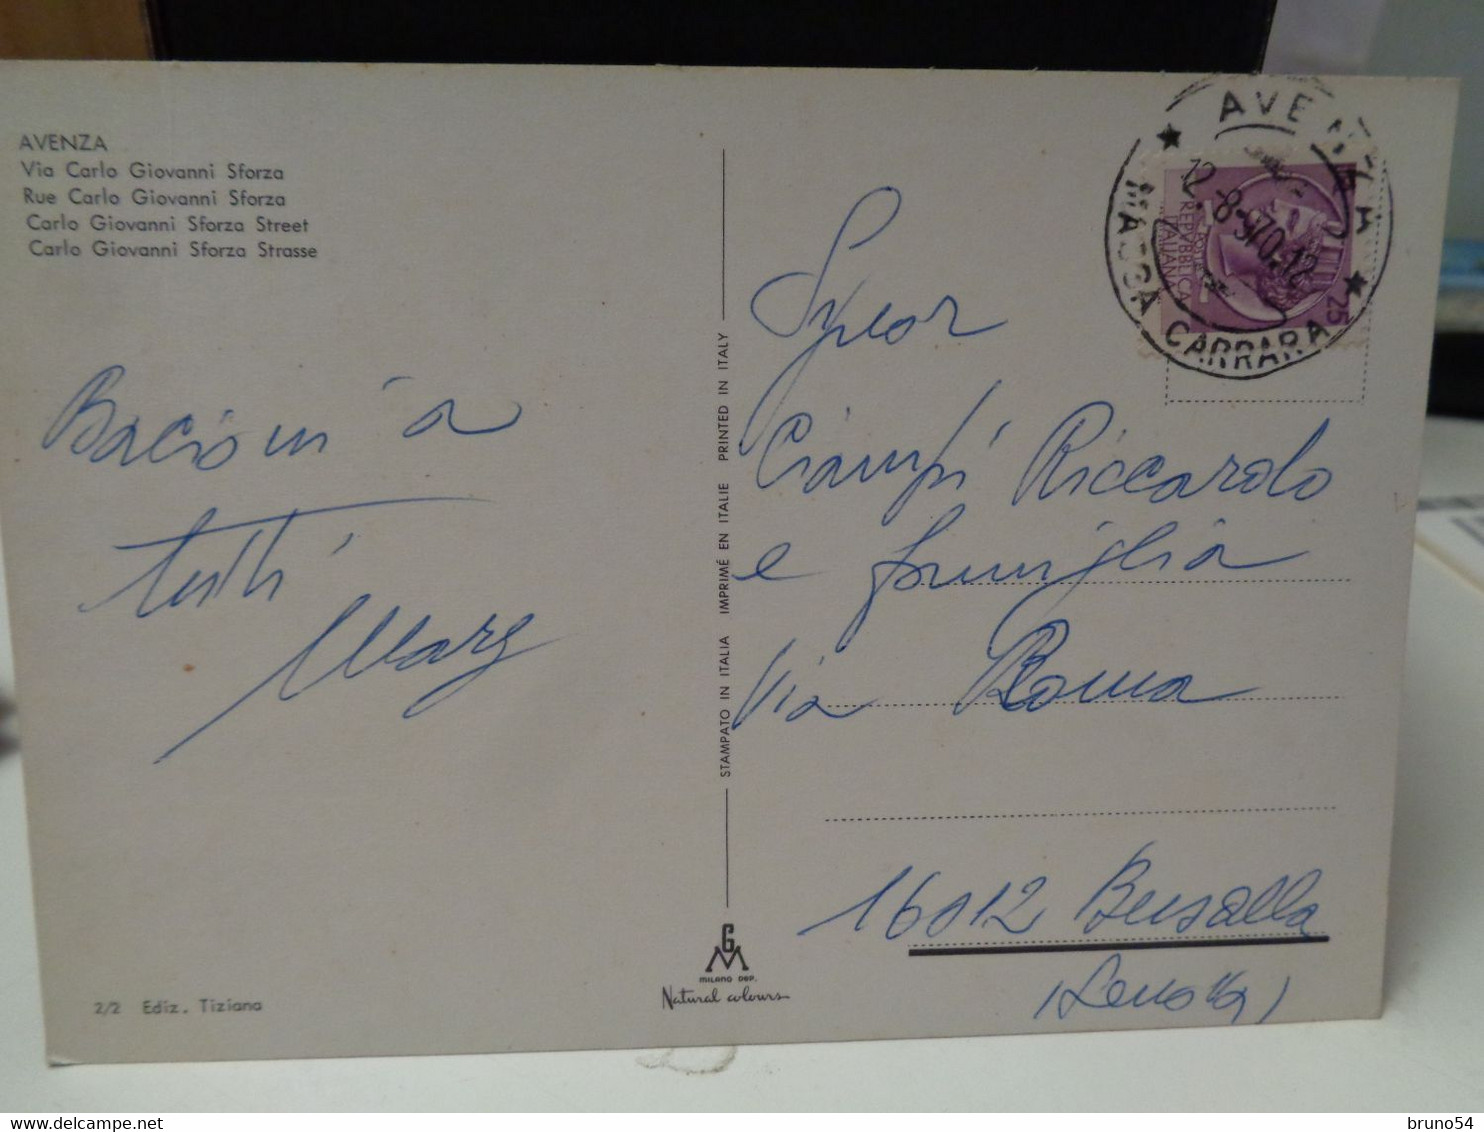 AVENZA
Via Carlo Giovanni Sforza
Rue Carlo Giovanni Sforza
Carlo Giovanni Sforza Street
Carlo Giovanni Sforza Strasse
Bacioni a
tutti
2/2 Ediz. Tiziana
STAMPATO IN ITALIA IMPRIMÉ EN ITALIE PRINTED IN ITALY
GM
MILANO DEP.
Natural colours
AVENZA
MASSA CARRARA
12.-8-970.12
REPVBBLICA
ITALIANA
25
Ciampi Riccardo
e famiglia
Via Roma
16012 Busalla
(Genova)
bruno54